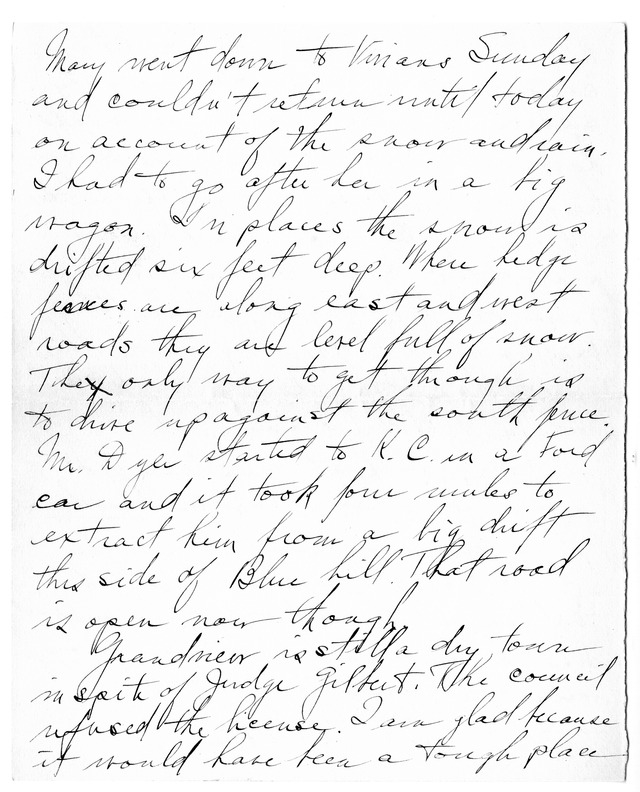 Mary went down to Vivians Sunday
and couldn't return until today
on account of the snow and rain.
I had to go after her in a big
wagon. In places the snow is
drifted six feet deep. Where hedge
fences are along east and west
roads they are level full of snow.
They only way to get through is
to drive up against the south fence.
Mr. Dyer started to K. C. in a Ford
car and it took four mules to
extract him from a big drift
this side of Blue hill. That road
is open now though.
Grandview is still a dry town
in spite of Judge Gilbert. The council
refused the license. I am glad because
it would have been a tough place